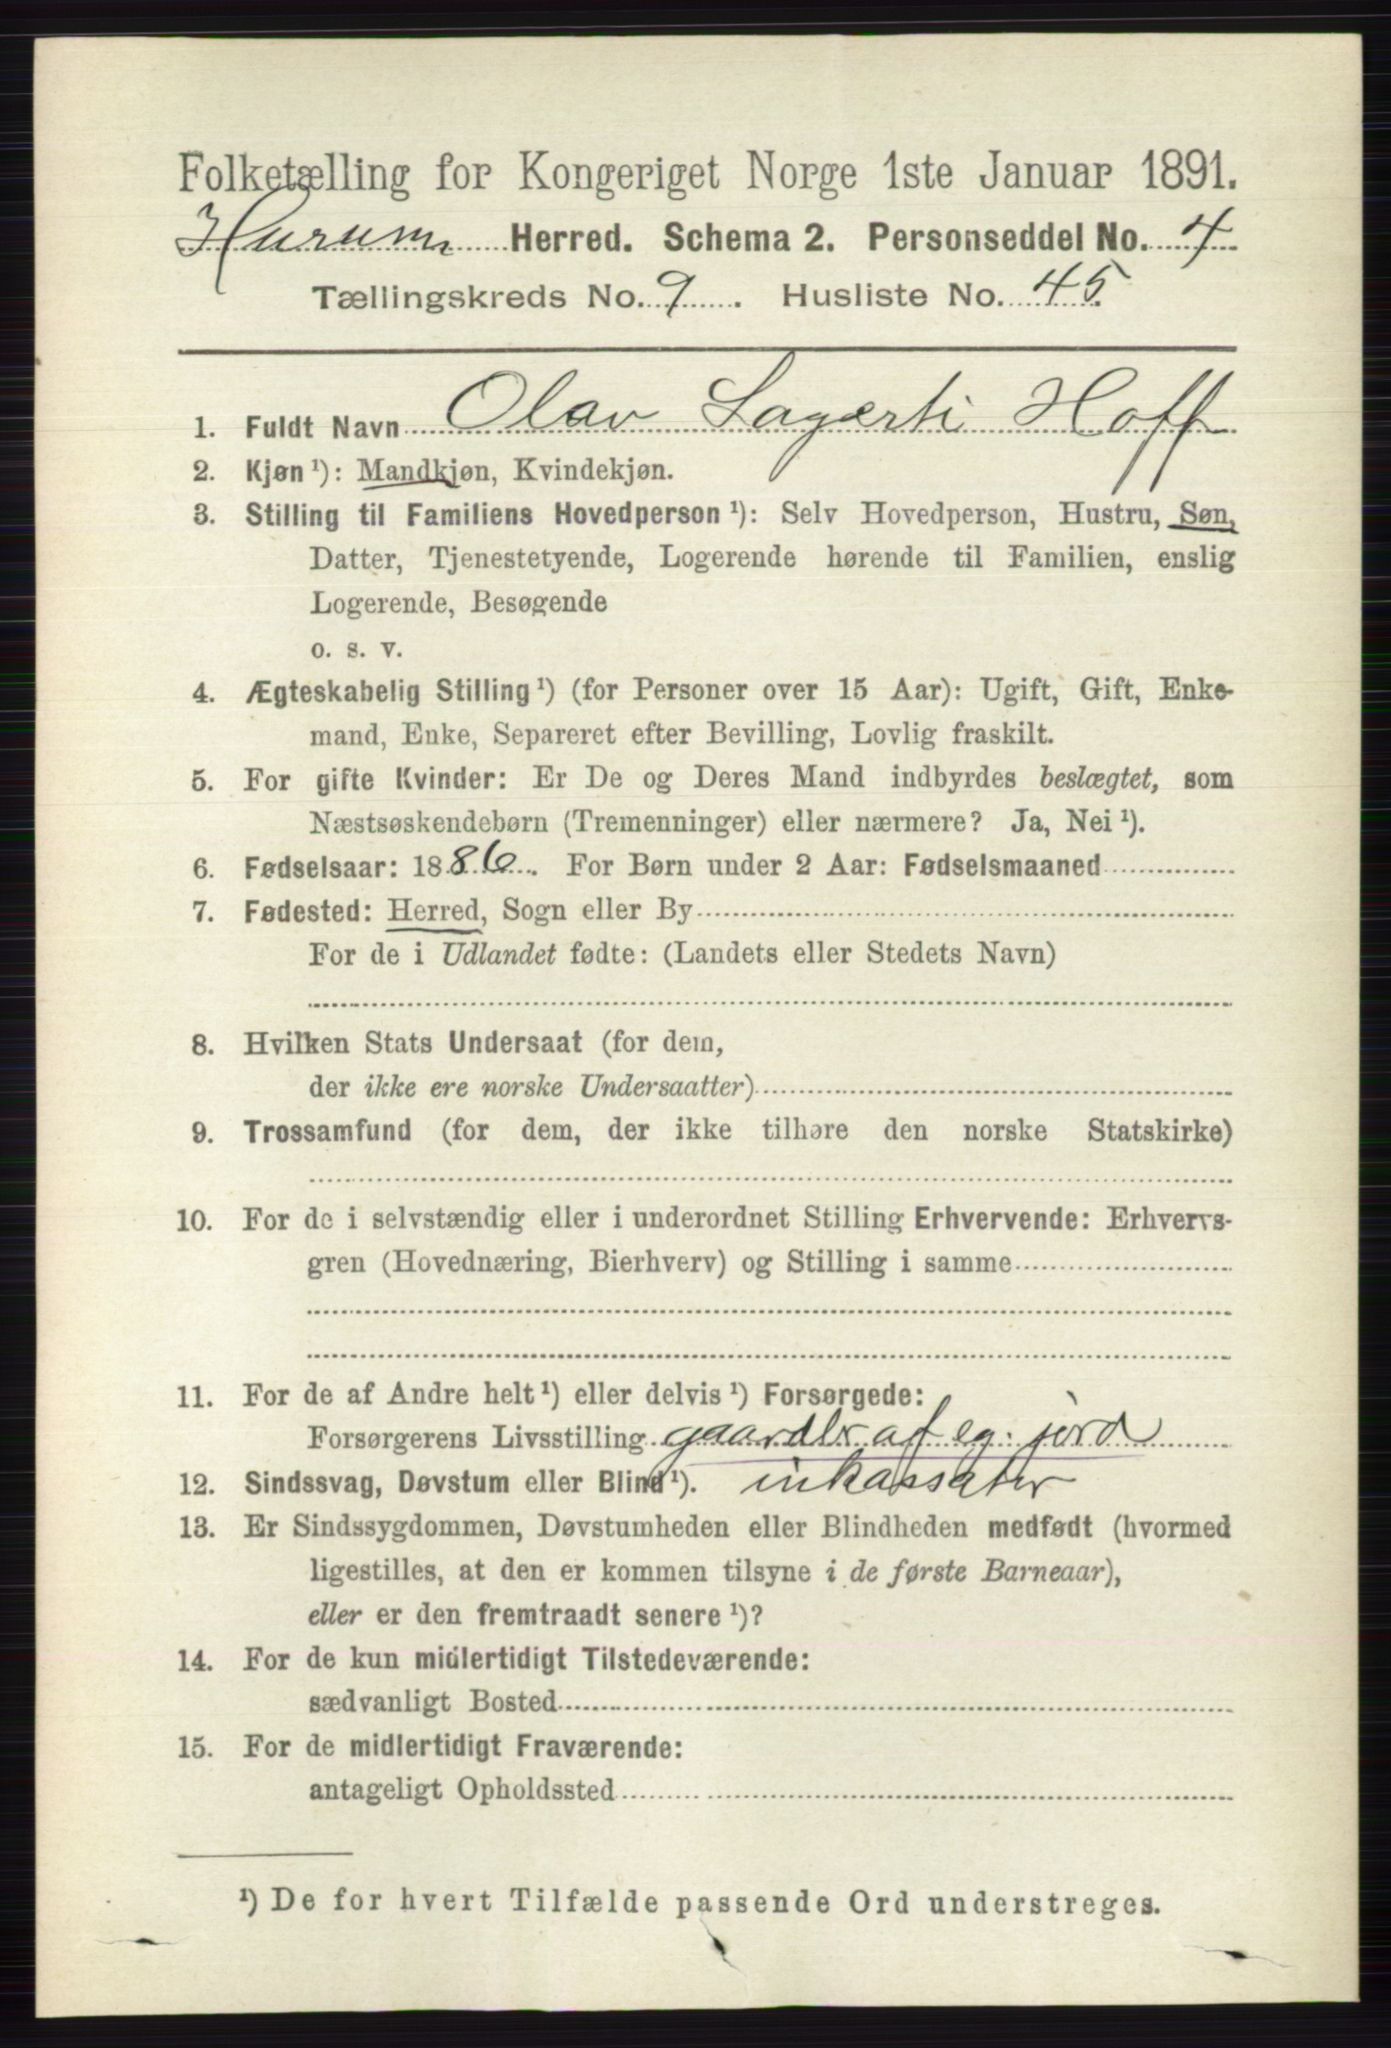 Folketælling for Kongeriget Norge 1ste Januar 1891.
Hurum Herred. Schema 2. Personseddel No. 4
Tællingskreds No. 9. Husliste No. 45.
1. Fuldt Navn Olav Lagerti Hoff
2. Kjøn ¹): Mandkjøn, Kvindekjøn.
3. Stilling til Familiens Hovedperson ¹): Selv Hovedperson, Hustru, Søn,
Datter, Tjenestetyende, Logerende hørende til Familien, enslig
Logerende, Besøgende
o. s. v.
4. Ægteskabelig Stilling ¹) (for Personer over 15 Aar): Ugift, Gift, Enke-
mand, Enke, Separeret efter Bevilling, Lovlig fraskilt.
5. For gifte Kvinder: Er De og Deres Mand indbyrdes beslægtet, som
Næstsøskendebørn (Tremenninger) eller nærmere? Ja, Nei ¹).
6. Fødselsaar: 1886. For Børn under 2 Aar: Fødselsmaaned
7. Fødested: Herred, Sogn eller By
For de i Udlandet fødte: (Landets eller Stedets Navn)
8. Hvilken Stats Undersaat (for dem,
der ikke ere norske Undersaatter)
9. Trossamfund (for dem, der ikke tilhøre den norske Statskirke)
10. For de i selvstændig eller i underordnet Stilling Erhvervende: Erhvervs-
gren (Hovednæring, Bierhverv) og Stilling i samme
11. For de af Andre helt ¹) eller delvis ¹) Forsørgede:
Forsørgerens Livsstilling gaardbr af eg. jord
12. Sindssvag, Døvstum eller Blind ¹). inkassator
13. Er Sindssygdommen, Døvstumheden eller Blindheden medfødt (hvormed
ligestilles, at den er kommen tilsyne i de første Barneaar),
eller er den fremtraadt senere ¹)?
14. For de kun midlertidigt Tilstedeværende:
sædvanligt Bosted
15. For de midlertidigt Fraværende:
antageligt Opholdssted
¹) De for hvert Tilfælde passende Ord understreges.